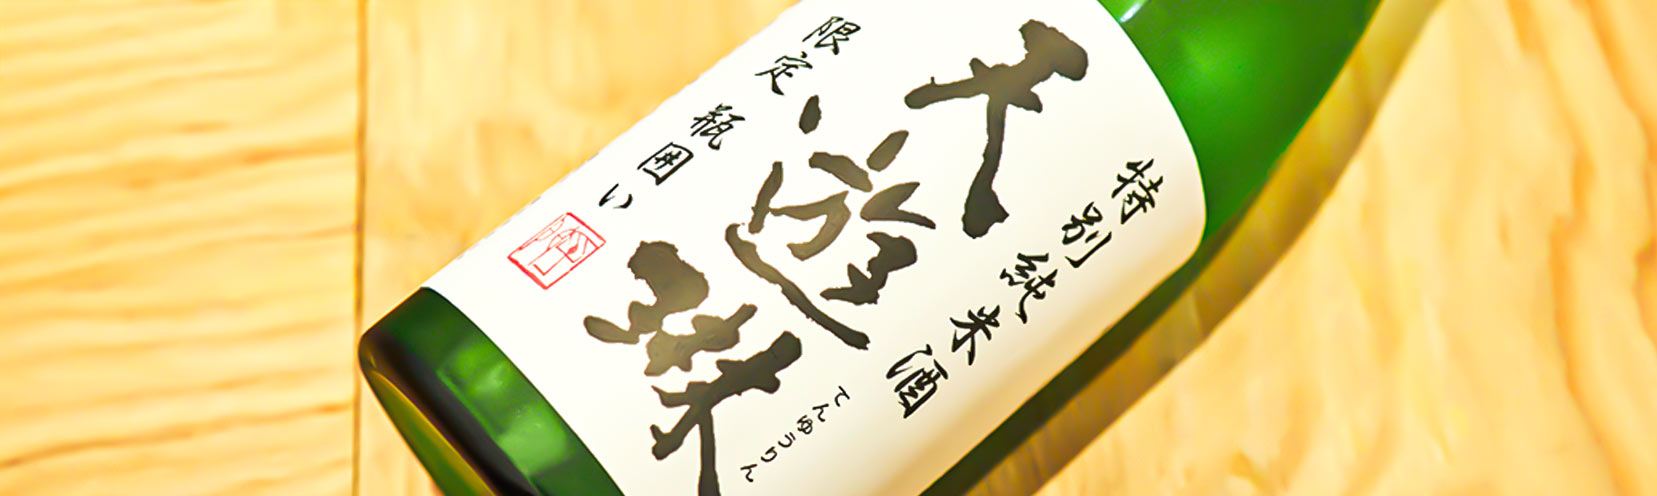 特別純米酒
天遊琳
てんゆうりん
限定 瓶囲い